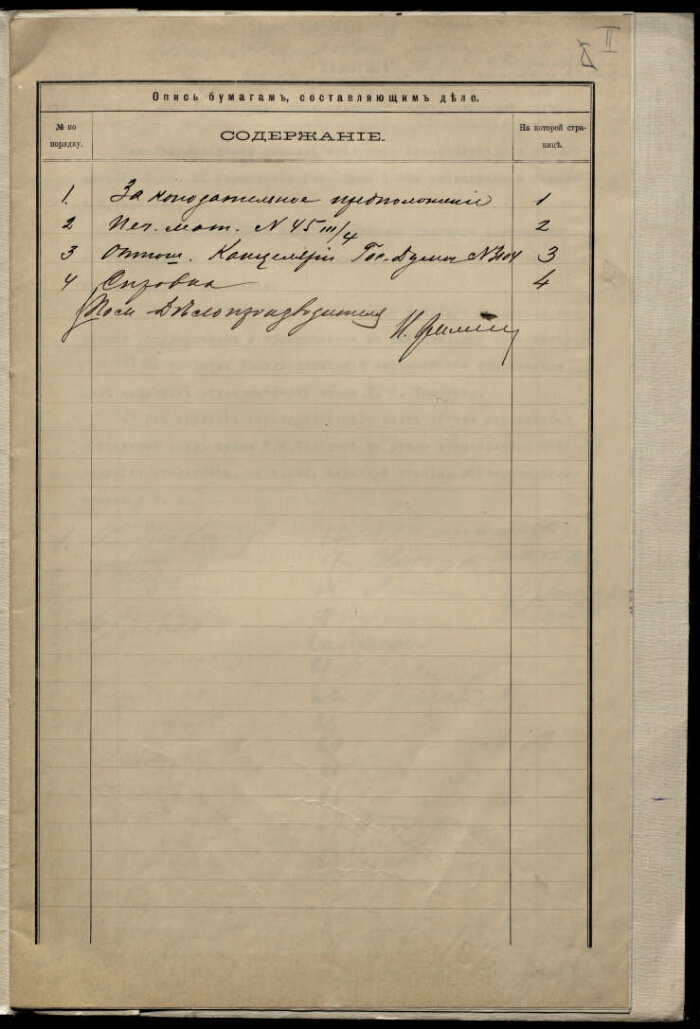 II
Опись бумагамъ, составляющимъ дѣло.
№ по порядку.
СОДЕРЖАНІЕ.
На которой стра-
ницѣ.
1. Законодательное предположеніе 1
2 Печ. мат. N 45 III/4 2
3 Отнош. Канцеляріи Гос. Думы N 3
4 Справка 4
Дѣлопроизводителя